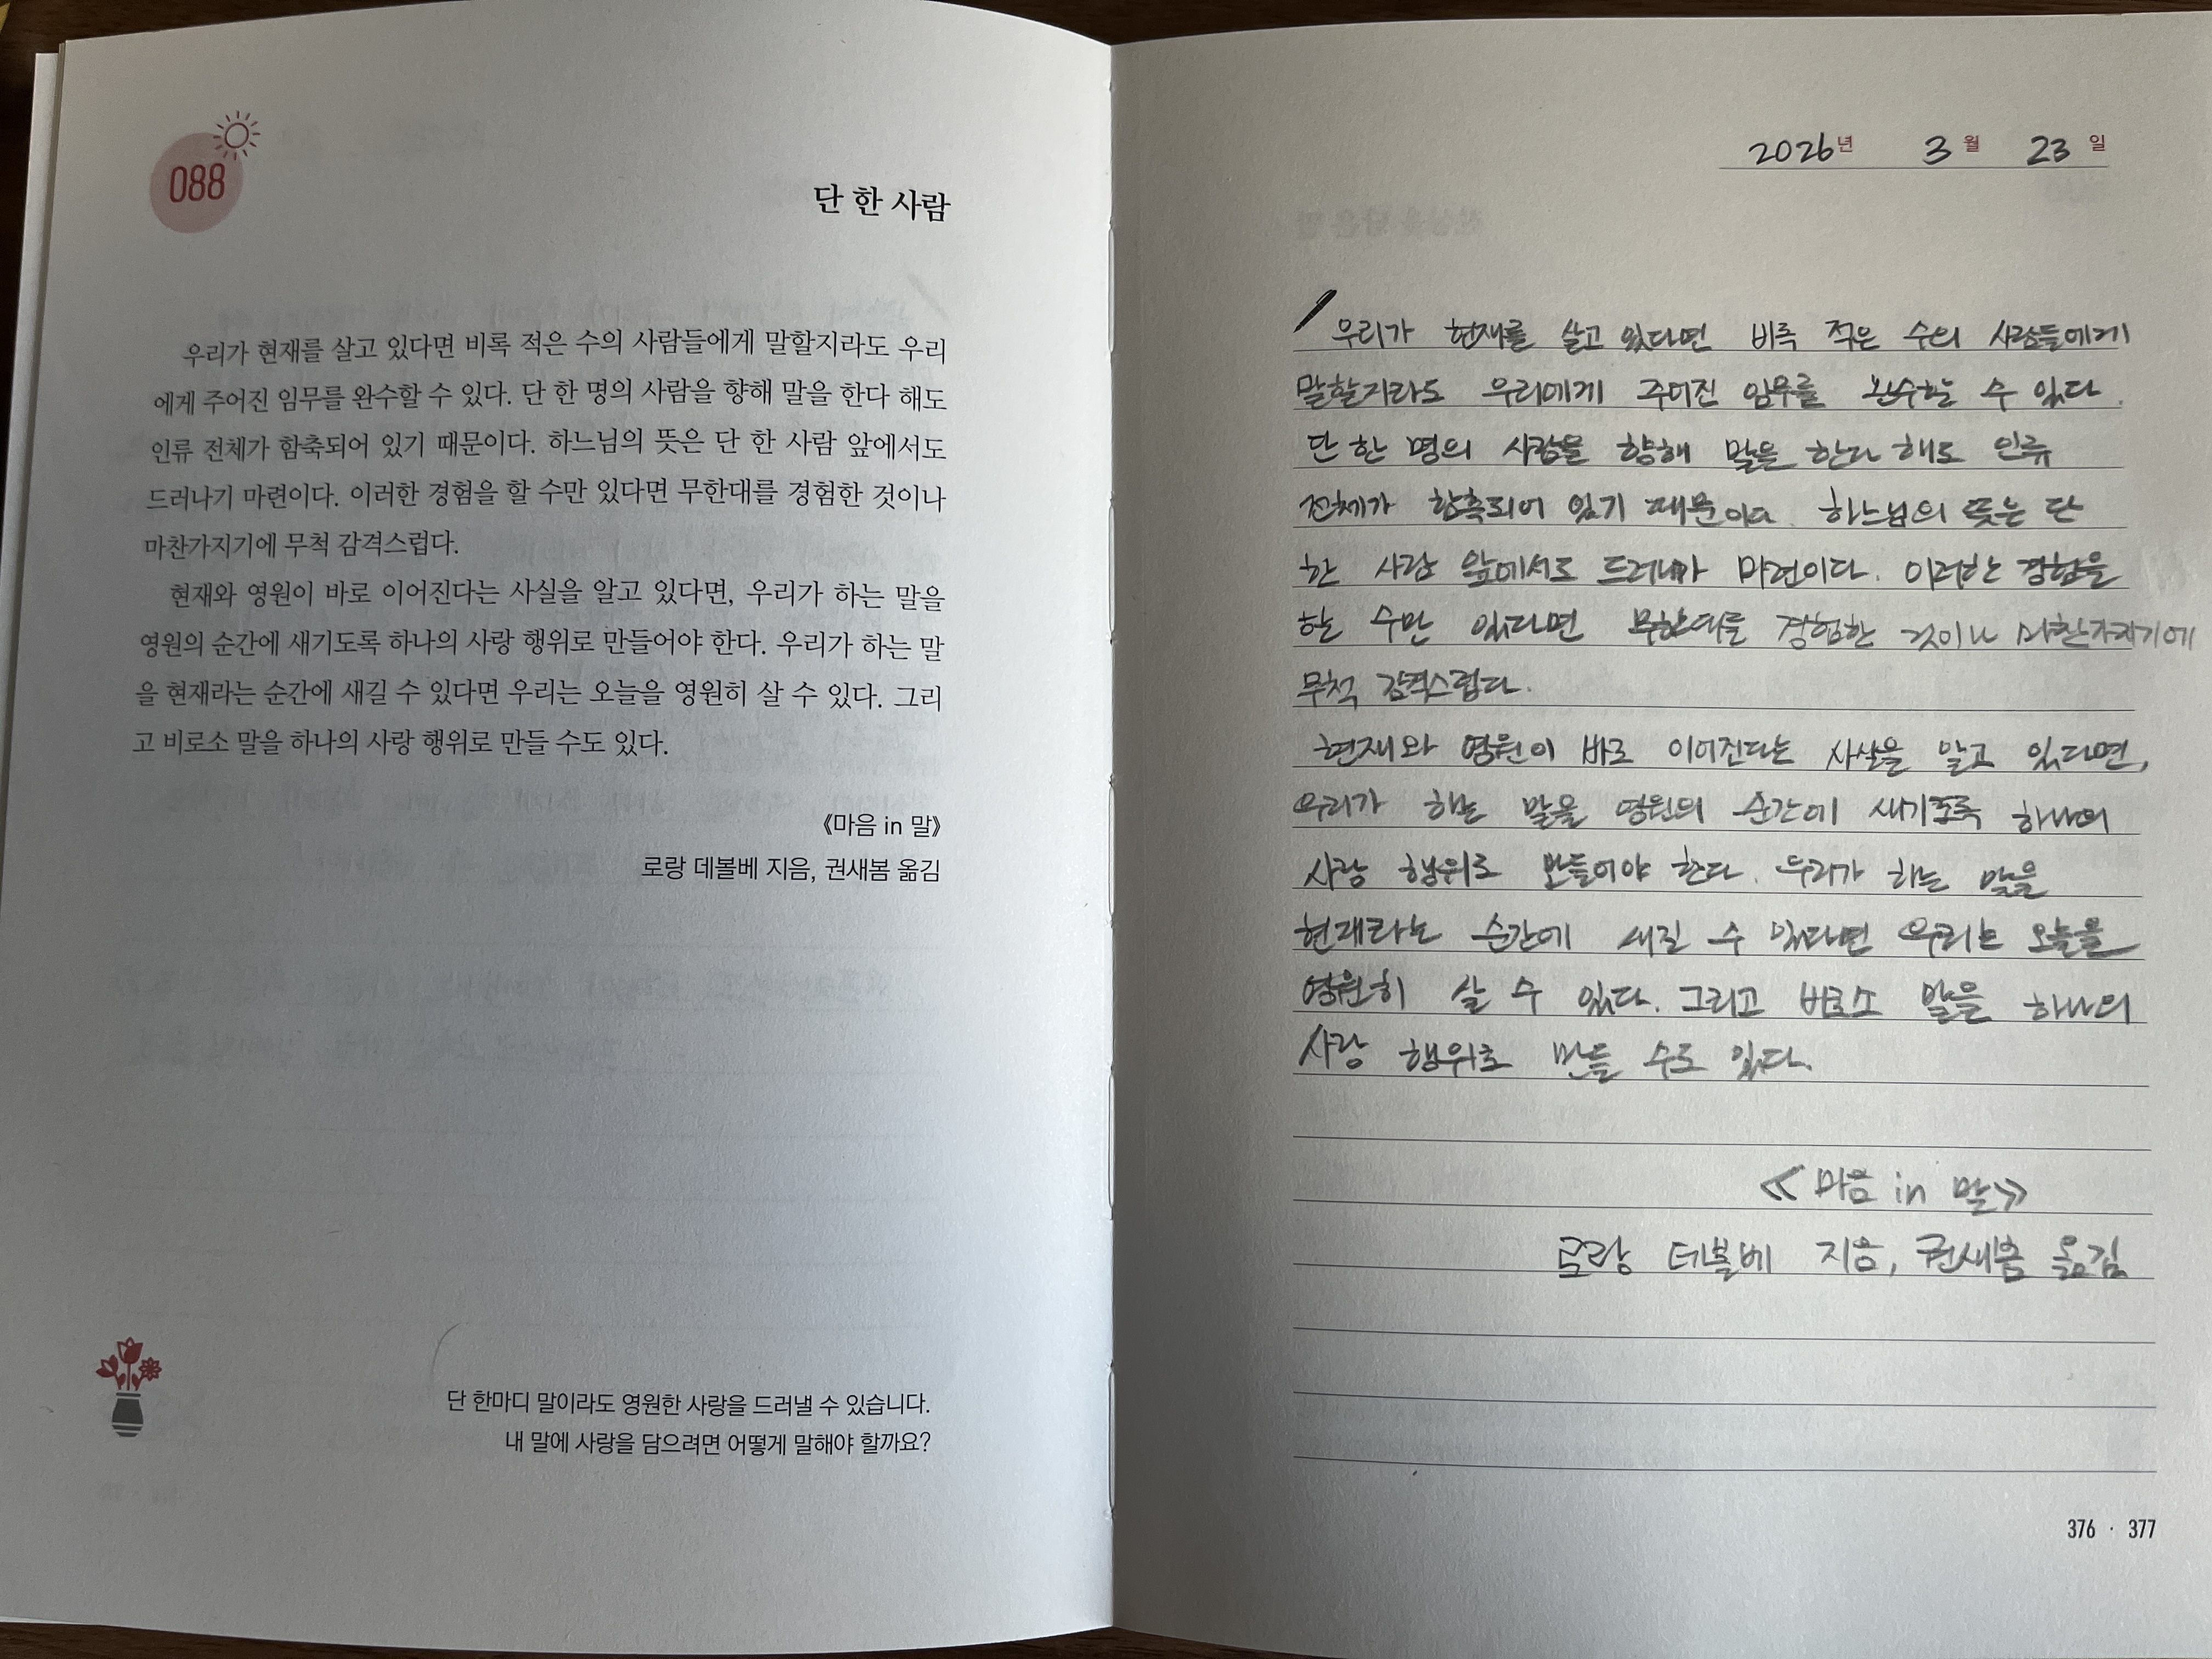 088
단 한 사람
우리가 현재를 살고 있다면 비록 적은 수의 사람들에게 말할지라도 우리
에게 주어진 임무를 완수할 수 있다. 단 한 명의 사람을 향해 말을 한다 해도
인류 전체가 함축되어 있기 때문이다. 하느님의 뜻은 단 한 사람 앞에서도
드러나기 마련이다. 이러한 경험을 할 수만 있다면 무한대를 경험한 것이나
마찬가지기에 무척 감격스럽다.
현재와 영원이 바로 이어진다는 사실을 알고 있다면, 우리가 하는 말을
영원의 순간에 새기도록 하나의 사랑 행위로 만들어야 한다. 우리가 하는 말
을 현재라는 순간에 새길 수 있다면 우리는 오늘을 영원히 살 수 있다. 그리
고 비로소 말을 하나의 사랑 행위로 만들 수도 있다.
《마음 in 말》
로랑 데볼베 지음, 권새봄 옮김
단 한마디 말이라도 영원한 사랑을 드러낼 수 있습니다.
내 말에 사랑을 담으려면 어떻게 말해야 할까요?
2026년 3월 23일
우리가 현재를 살고 있다면 비록 적은 수의 사람들에게
말할지라도 우리에게 주어진 임무를 완수할 수 있다.
단 한 명의 사람을 향해 말을 한다 해도 인류
전체가 함축되어 있기 때문이다. 하느님의 뜻은 단
한 사람 앞에서도 드러나기 마련이다. 이러한 경험을
할 수만 있다면 무한대를 경험한 것이나 마찬가지기에
무척 감격스럽다.
현재와 영원이 바로 이어진다는 사실을 알고 있다면,
우리가 하는 말을 영원의 순간에 새기도록 하나의
사랑 행위로 만들어야 한다. 우리가 하는 말을
현재라는 순간에 새길 수 있다면 우리는 오늘을
영원히 살 수 있다. 그리고 비로소 말을 하나의
사랑 행위로 만들 수도 있다.
《마음 in 말》
로랑 데볼베 지음, 권새봄 옮김
376 · 377